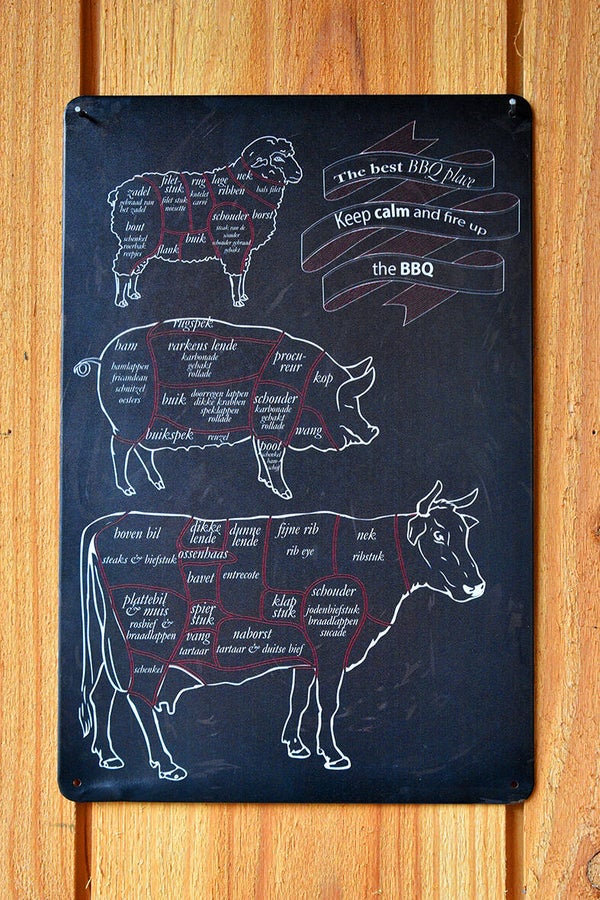 The best BBQ place
Keep calm and fire up
the BBQ
zadel
gebraad van
het zadel
filet-
stuk
filet stuk
noisette
rug
kotelet
carré
lage
ribben
nek
hals filet
schouder
borst
schouder gebraad
gehakt
bout
schenkel
rosbief
reepjes
flank
buik
rugspek
ham
hamlappen
fricandeau
schnitzel
oesters
varkens lende
karbonade
gehakt
rollade
procu-
reur
kop
buik
doorregen lappen
dikke krabben
speklappen
rollade
schouder
karbonade
gehakt
rollade
wang
buikspek
reuzel
poot
schenkel
ham-
schijf
boven bil
steaks & biefstuk
dikke
lende
dunne
lende
ossenhaas
fijne rib
rib eye
nek
ribstuk
bavet
entrecote
plattebil
& muis
rosbief &
braadlappen
spier
stuk
klap
stuk
schouder
jodenbiefstuk
braadlappen
sucade
vang
tartaar
naborst
tartaar & duitse bief
schenkel